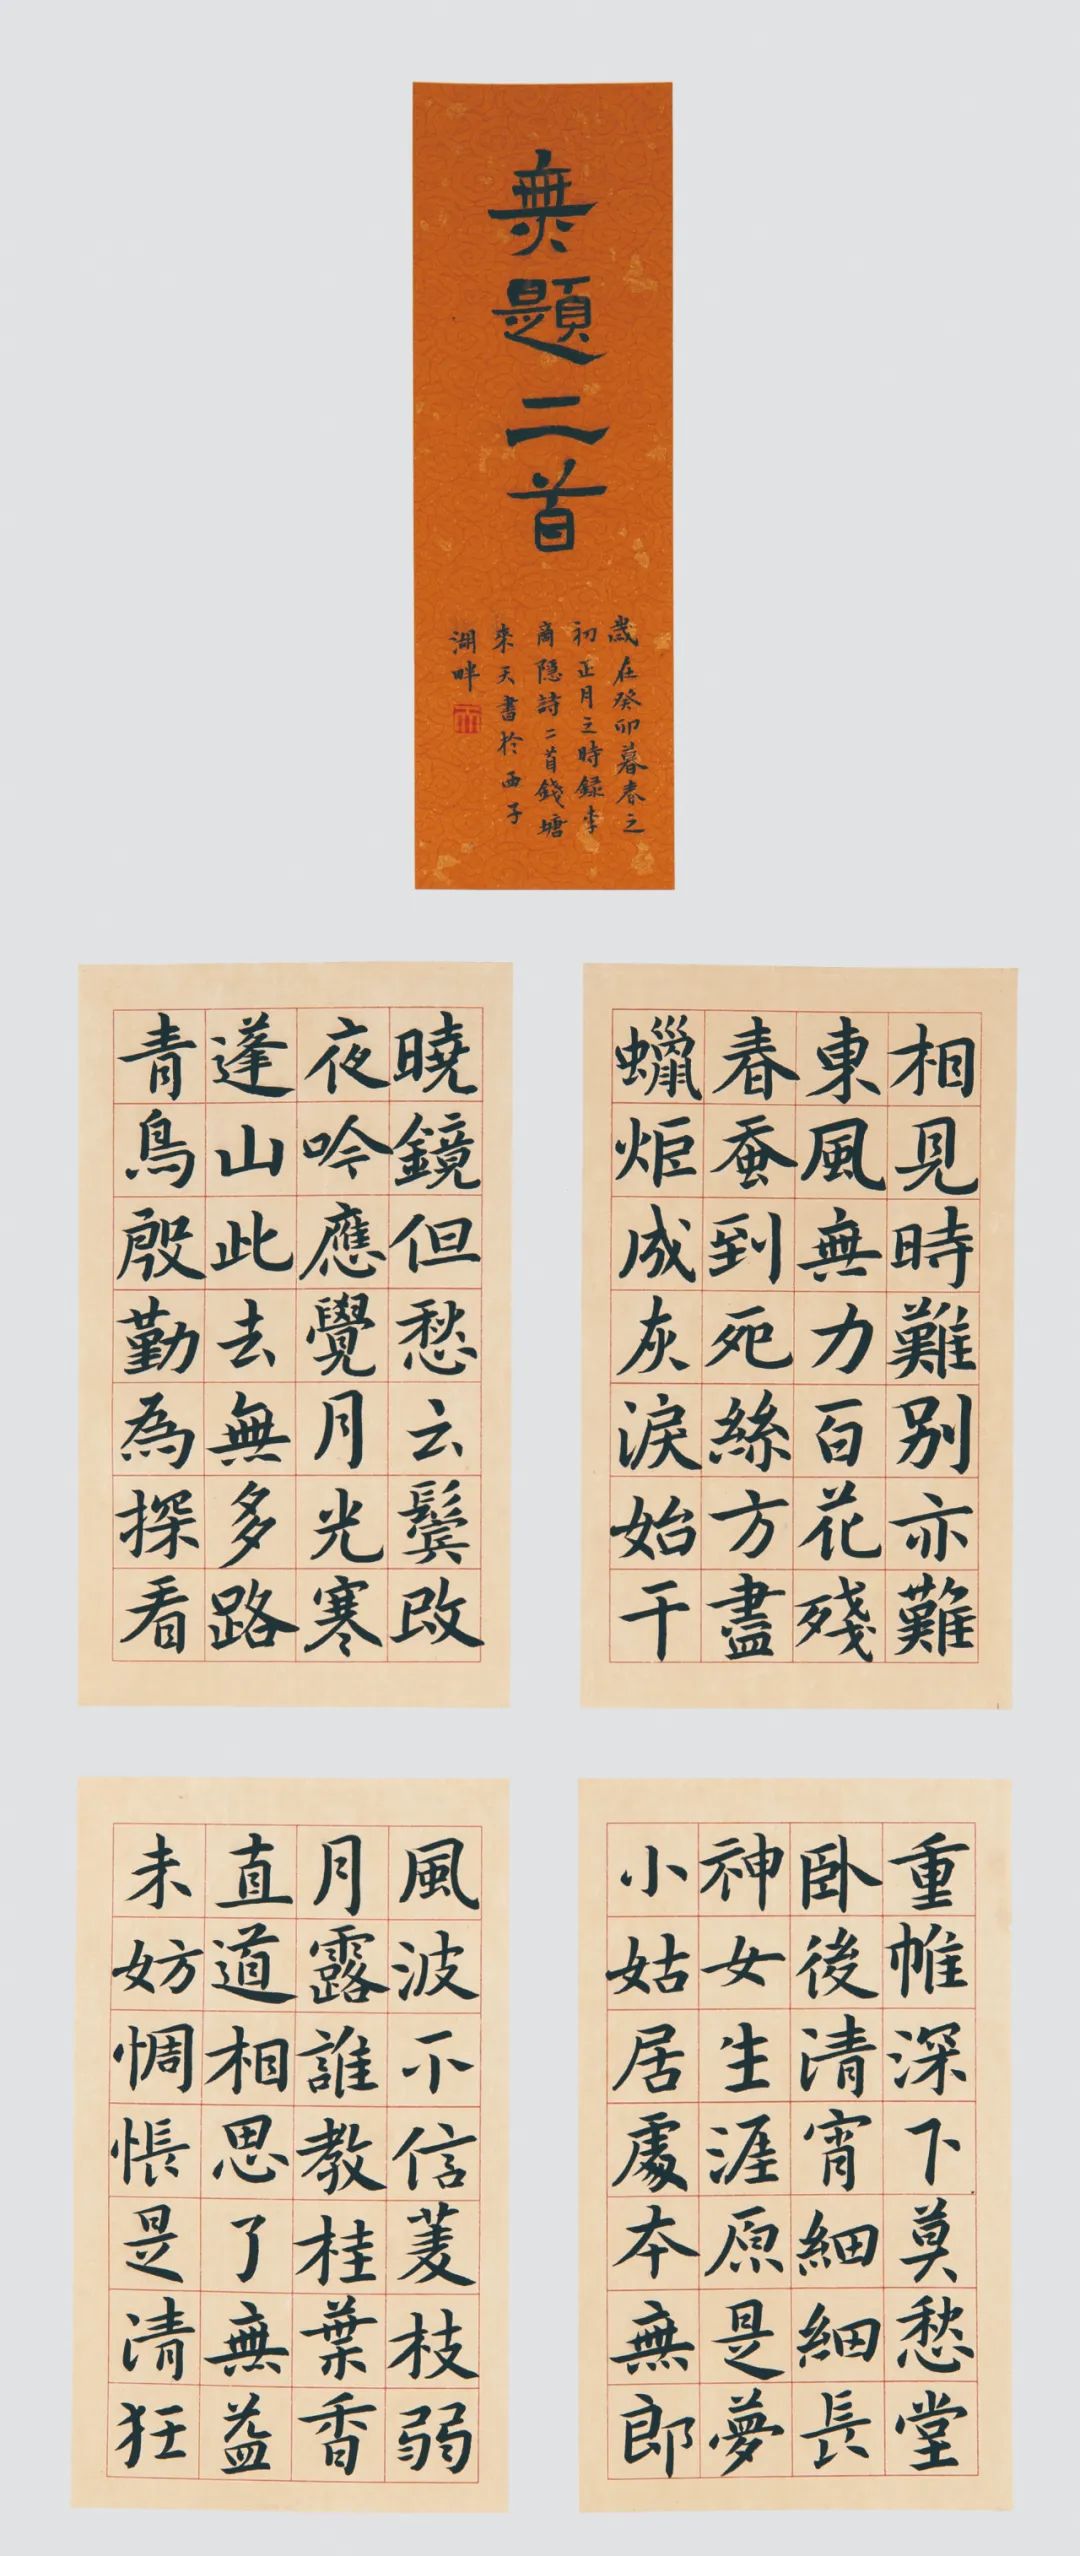 無題二首
歲在癸卯暮春之
初正月之時錄李
商隱詩二首錢塘
來天書於西子
湖畔
相見時難別亦難
東風無力百花殘
春蚕到死絲方盡
蠟炬成灰淚始干
曉鏡但愁云鬓改
夜吟應覺月光寒
蓬山此去無多路
青鳥殷勤為探看
重帷深下莫愁堂
卧後清宵細細長
神女生涯原是夢
小姑居處本無郎
風波不信菱枝弱
月露誰教桂葉香
直道相思了無益
未妨惆悵是清狂